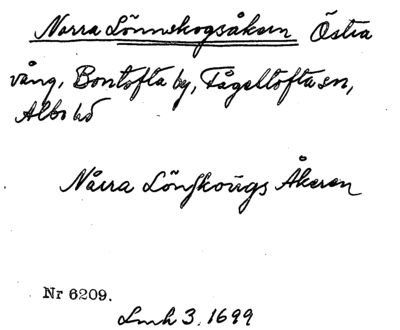 Norra Lönnskogsåkern Östra
vång, Bontofta by, Fågeltofta sn,
Albo hd
Nårra Lönskougs Åkeren
Nr 6209.
Lmh 3. 1699